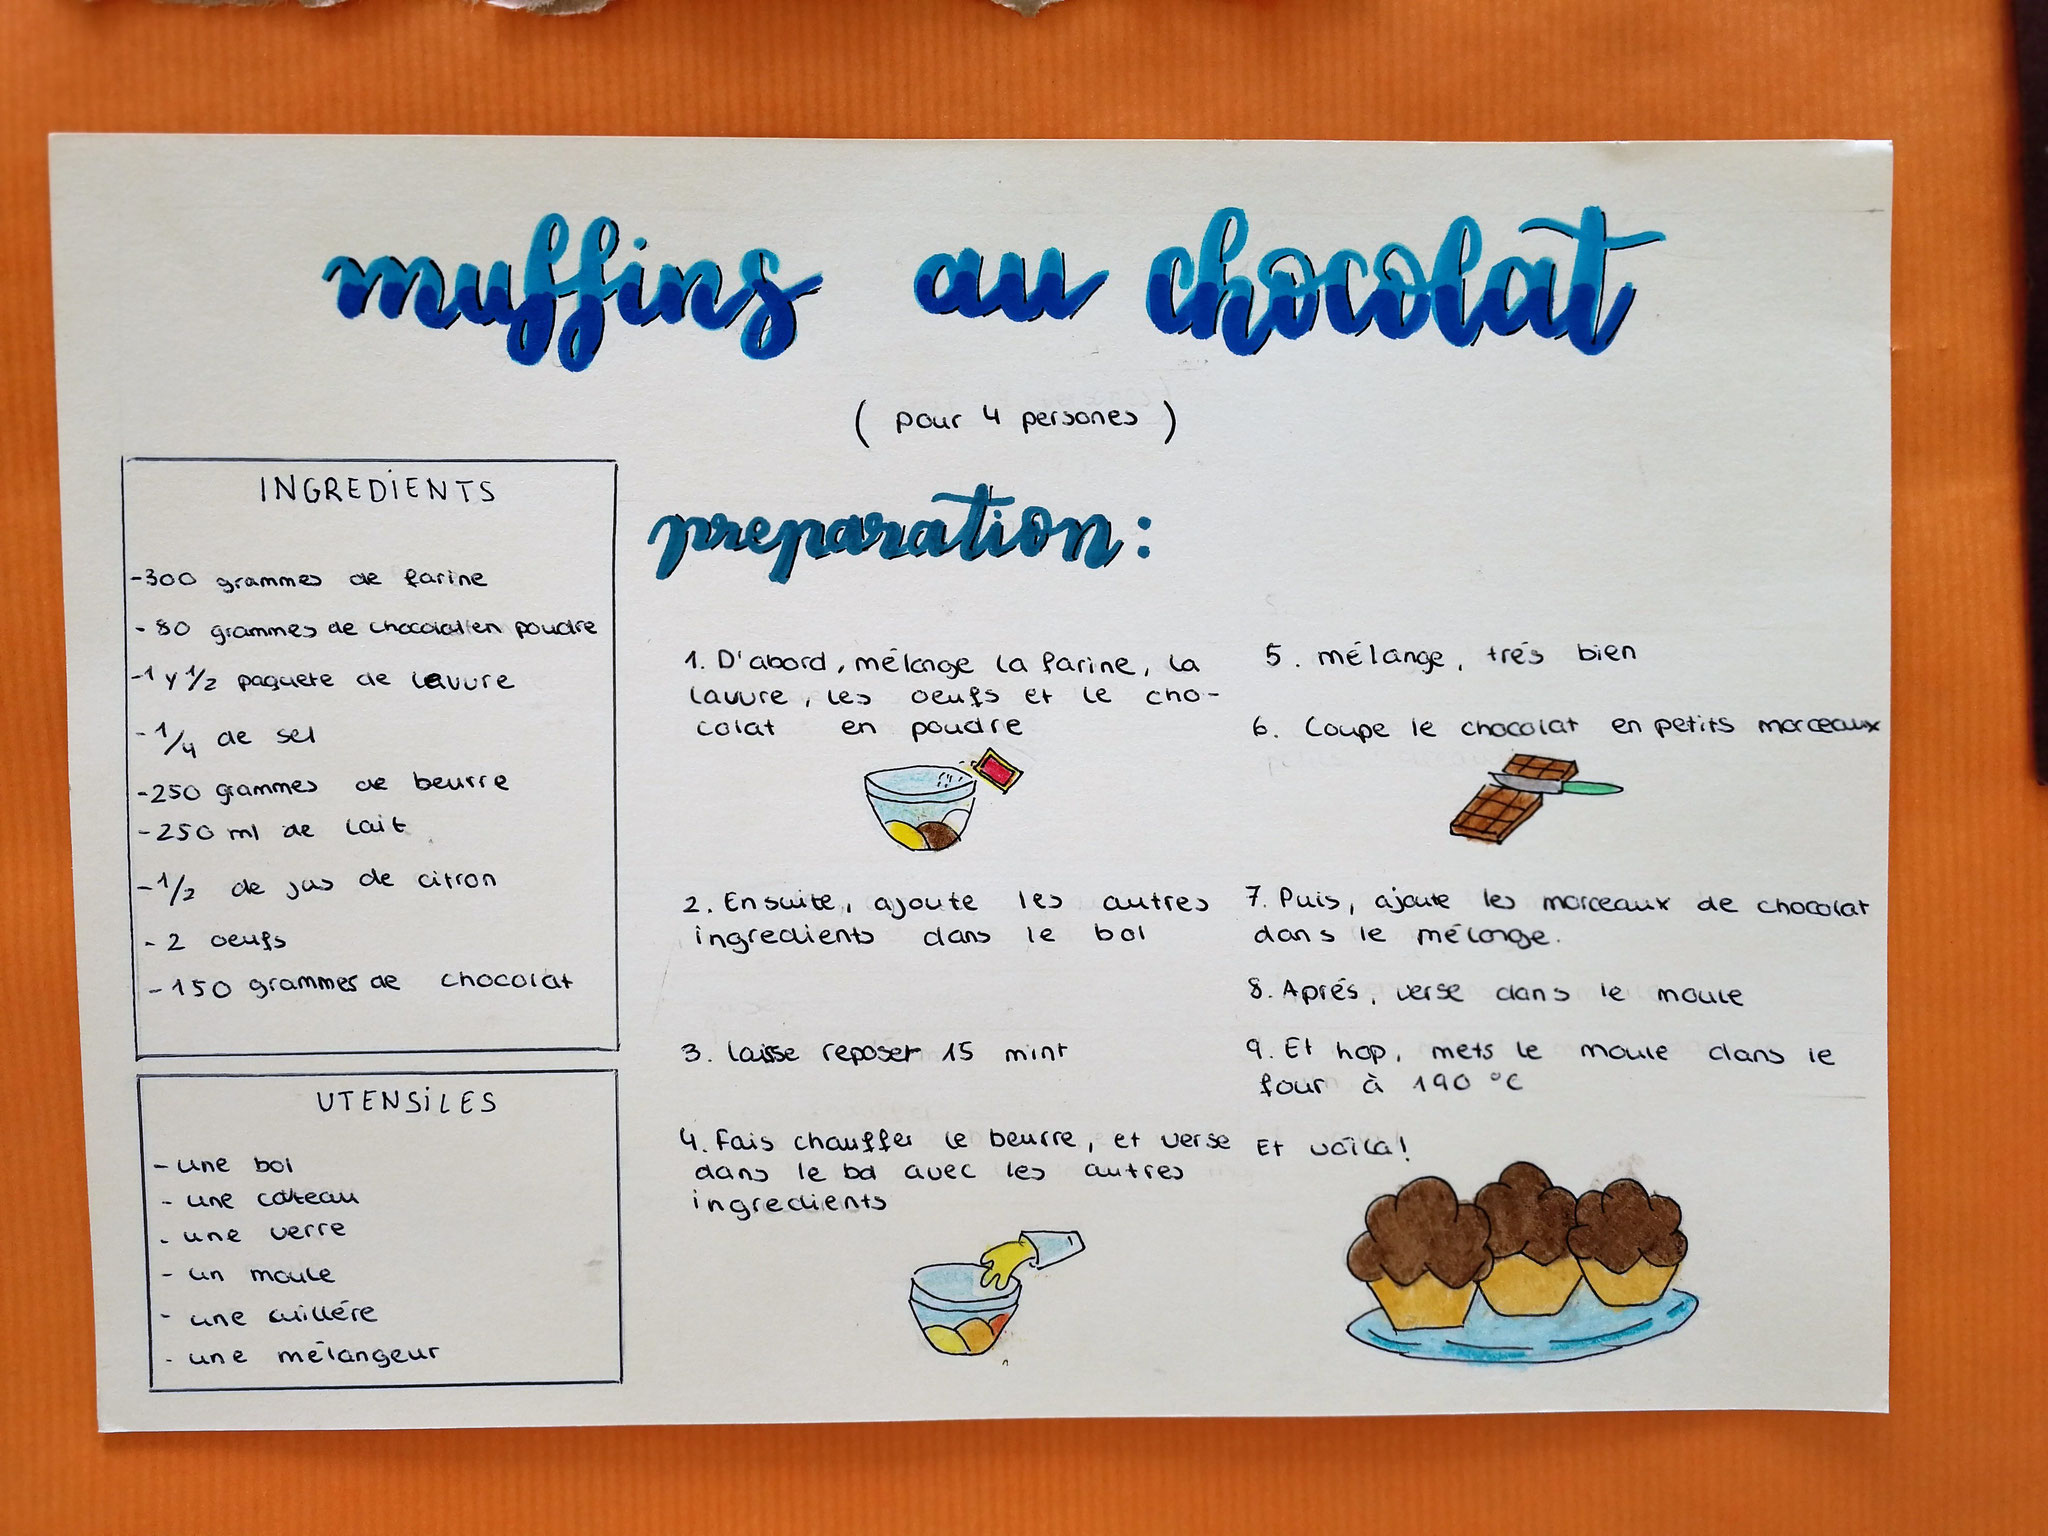 muffins au chocolat
( pour 4 persones )
INGREDIENTS
-300 grammes de farine
- 80 grammes de chocolat en poudre
-1 y 1/2 paquete de levure
- 1/4 de sel
-250 grammes de beurre
-250 ml de lait
-1/2 de jus de citron
- 2 oeufs
-150 grammes de chocolat
UTENSILES
- une bol
- une coteau
- une verre
- un moule
- une cuillére
- une mélangeur
preparation:
1. D'abord, mélange la farine, la
lavure, les oeufs et le cho-
colat en poudre
2. Ensuite, ajoute les autres
ingredients dans le bol
3. laisse reposer 15 mint
4. Fais chauffer le beurre, et verse
dans le bol avec les autres
ingredients
5. mélange, trés bien
6. Coupe le chocolat en petits morceaux
7. Puis, ajoute les morceaux de chocolat
dans le mélange.
8. Aprés, verse dans le moule
9. Et hop, mets le moule dans le
four à 190 °C
Et voila!